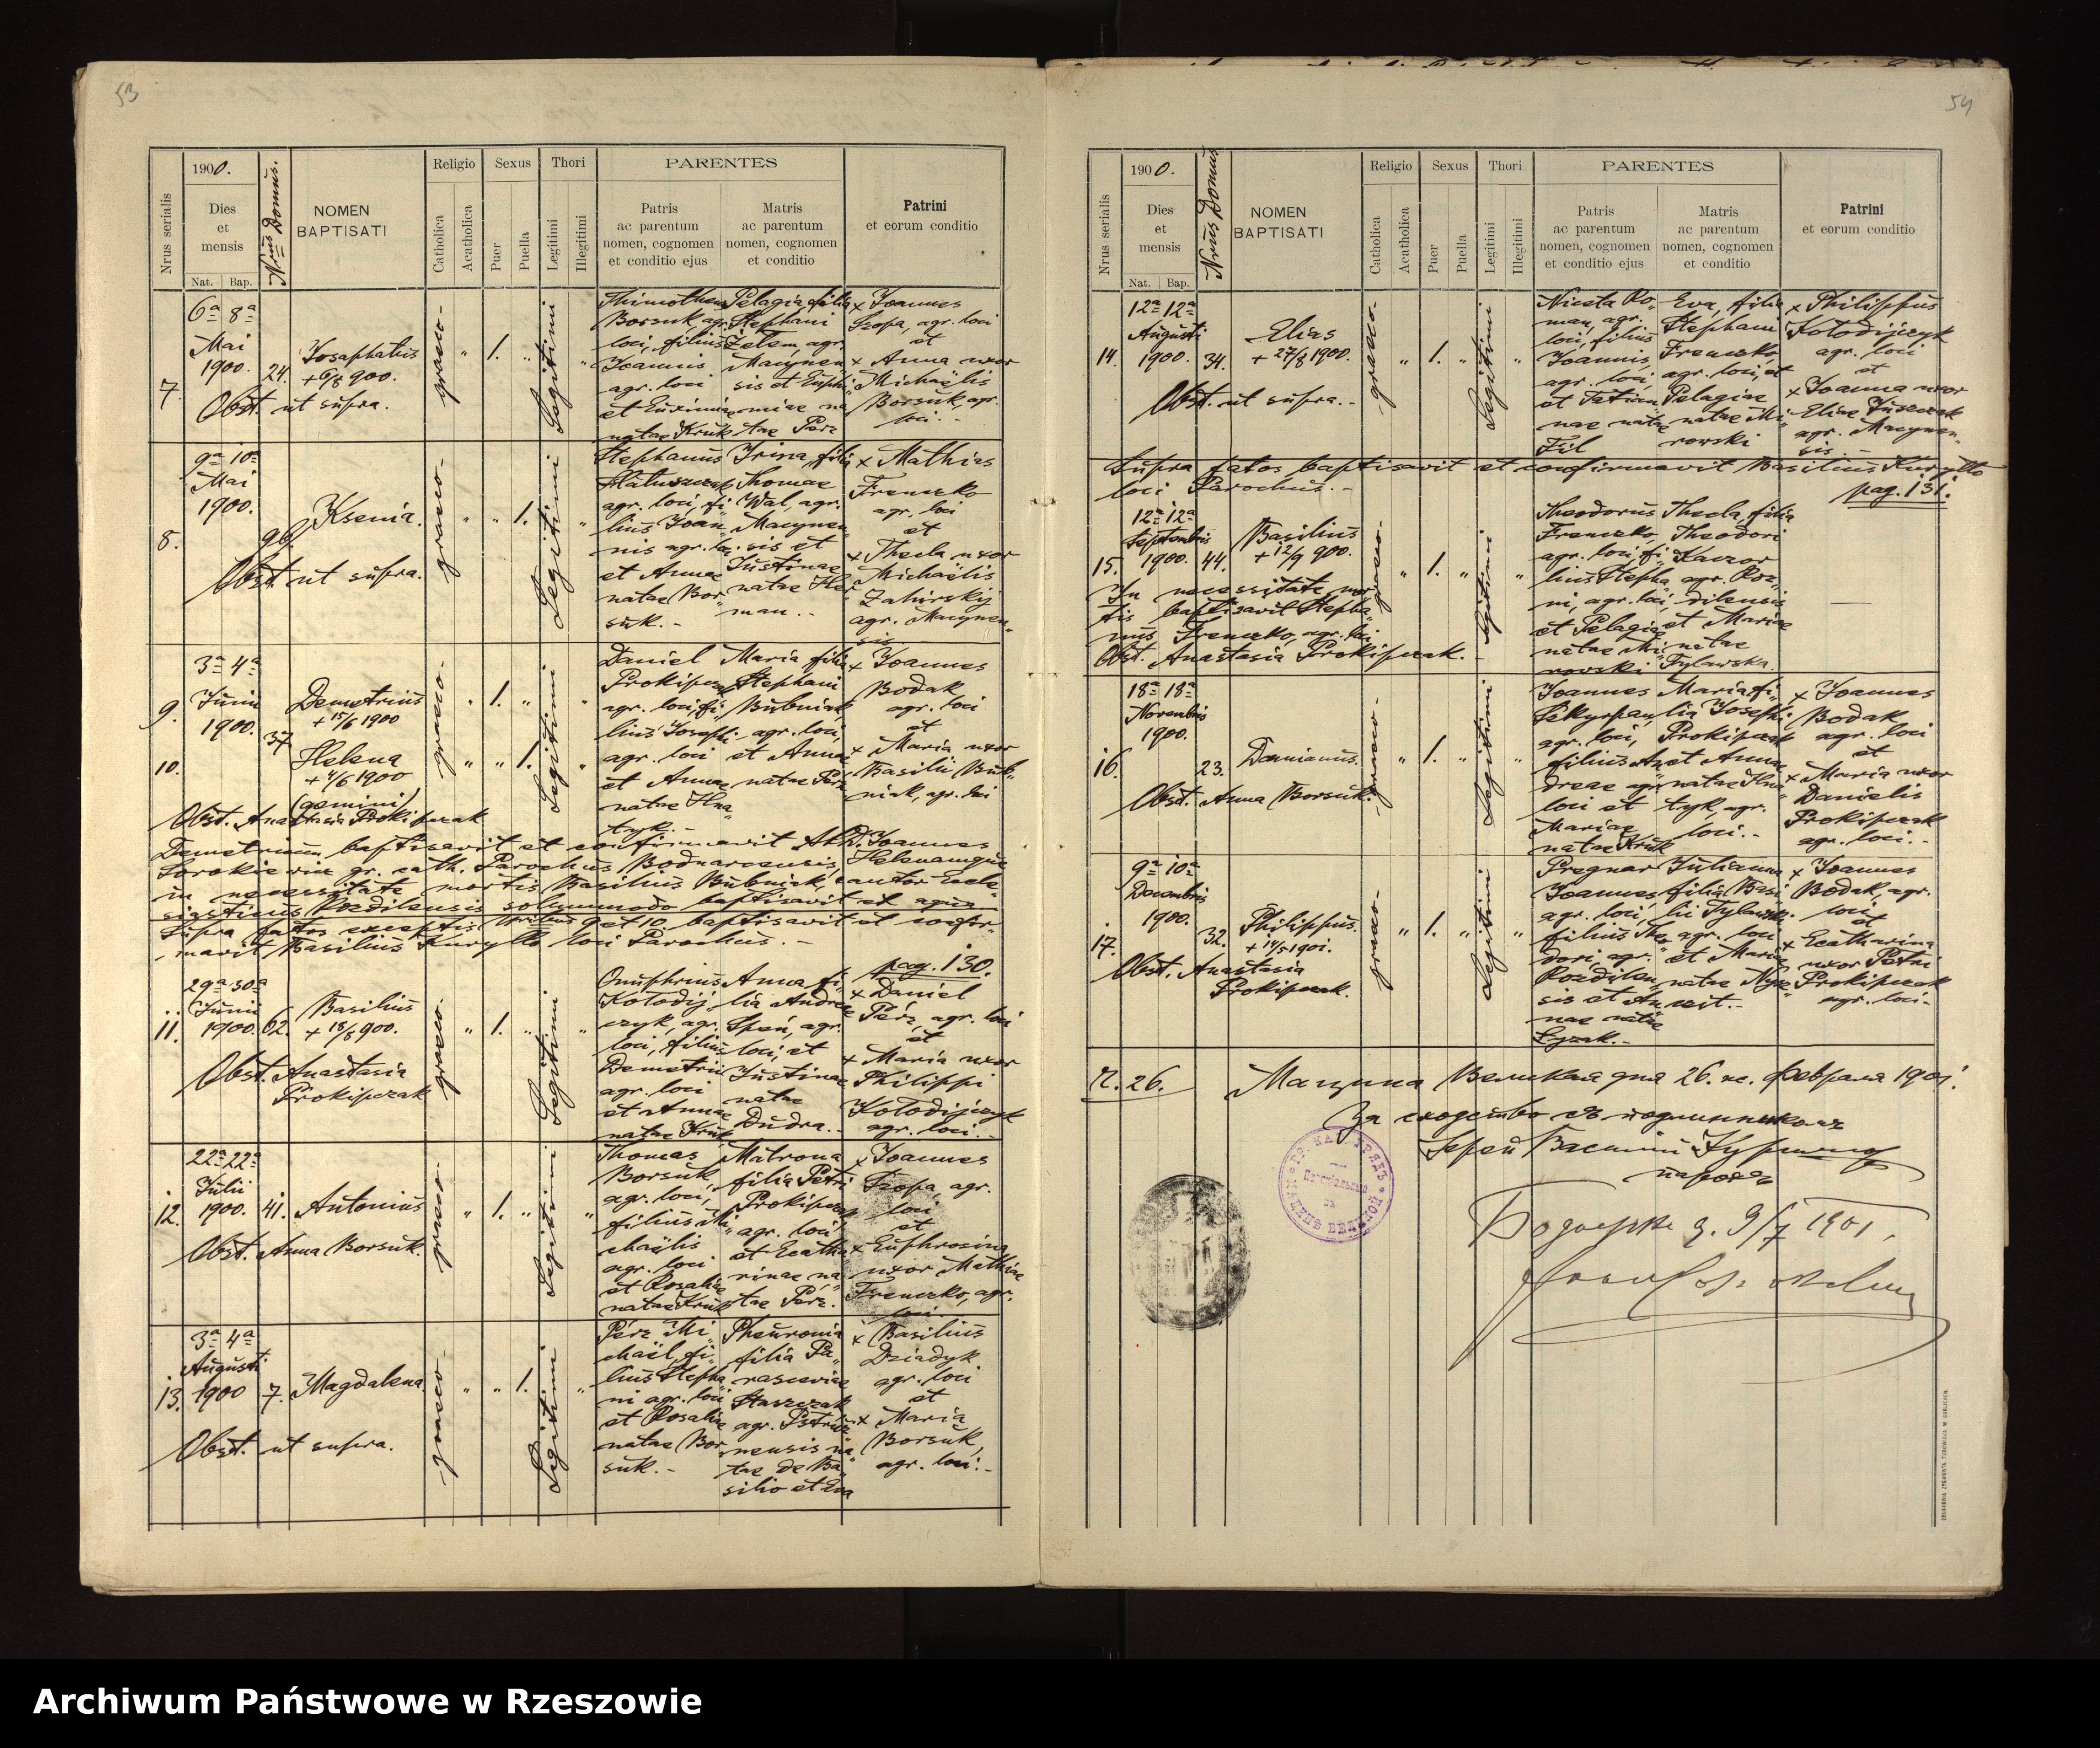 53
1900.
Nrus serialis
Dies
et
mensis
Nat. Bap.
Nrus Domus.
NOMEN
BAPTISATI
Religio
Catholica
Acatholica
Sexus
Puer
Puella
Thori
Legitimi
Illegitimi
PARENTES
Patris
ac parentum
nomen, cognomen
et conditio ejus
Matris
ac parentum
nomen, cognomen
et conditio
Patrini
et eorum conditio
7
6ª 8ª
Mai
1900.
24.
Josaphatus
+ 6/8 900.
Obst. ut supra.
graeco-
" 1. "
Legitimi
"
Thimotheus
Borsuk, agr.
loci, filius
Joannis
agr. loci
et Euximiae
natae Kruk
Pelagia, filia
Stephani
agr.
Macynen
sis et Euphi
miae na
tae Perz
x Joannes
Szopa, agr. loci
et
x Anna uxor
Michaëlis
Borsuk, agr.
loci. -
8.
9ª 10ª
Mai
1900.
Ksenia.
Obst. ut supra.
graeco-
" " 1.
Legitimi
"
Stephanus
Matuszczak
agr. loci, fi
lius Joan
nis agr. loci
et Annae
natae Bor
suk. -
Irina, filia
Thomae
Wal, agr.
Macynen
sis et
Justinae
natae Her
man. -
x Mathias
Frenczko
agr. loci
et
x Thecla uxor
Michaëlis
Zahirskij
agr. Macynen
sis
9.
3ª 4ª
Junii
1900.
37
Demetrius
+ 15/6 1900
10.
Helena
+ 4/6 1900
(gemini)
Obst. Anastasia Prokipczak
graeco-
" 1. "
" " 1.
Legitimi
"
Daniel
Prokipczak
agr. loci, fi
lius Josephi
agr. loci
et Annae
natae Hna
tyk. -
Maria, filia
Stephani
Bubniak
agr. loci,
et Annae
natae Perz
x Joannes
Bodak
agr. loci
et
x Maria uxor
Basilii Bub
niak, agr. loci
Demetrium baptisavit et confirmavit ARD. Joannes
gr. cath. Parochus Bodnarcensis, Helenamque
in necessitate mortis Basilius Bubniak, cantor Eccle
siasticus Rozdilensis solummodo baptisavit ex aqua
Supra fatos exceptis Nribus 9 et 10 baptisavit et confir-
mavit Basilius Kuryllo loci Parochus. -
pag. 130.
11.
29ª 30ª
Junii
1900.
62.
Basilius
+ 18/8 900.
Obst. Anastasia
Prokipczak
graeco-
" 1. "
Legitimi
"
Onuphrius
Kolodij
czyk, agr.
loci, filius
Demetrii
agr. loci
et Annae
natae Kruk
Anna fi
lia Andreae
Speń, agr.
loci, et
Justinae
natae
Dudra. -
x Daniel
Perz, agr. loci
et
x Maria uxor
Philippi
Kolodijczyk
agr. loci. -
12.
22ª 22ª
Julii
1900.
41.
Antonius
Obst. Anna Borsuk.
graeco-
" 1. "
Legitimi
"
Thomas
Borsuk
agr. loci,
filius Mi
chaëlis
agr. loci
et Rosaliae
natae Kruk
Matrona
filia Petri
Prokipczak
agr. loci
et Ecatha
rinae na
tae Perz.
x Joannes
Szopa, agr.
loci
et
x Euphrosina
uxor Mathiae
Frenczko, agr.
loci
13.
3ª 4ª
Augusti
1900
7.
Magdalena.
Obst. ut supra.
graeco-
" " 1.
Legitimi
"
Perz Mi
chaël, fi
lius Stepha
ni agr. loci
et Rosaliae
natae Bor
suk. -
Pheuronia
filia Pa
rasceviae
Staszczak
agr.
nensis na
tae de Ba
silio et Eva
x Basilius
Dziadyk
agr. loci
et
x Maria
Borsuk,
agr. loci. -
54
1900.
Nrus serialis
Dies
et
mensis
Nat. Bap.
Nrus Domus
NOMEN
BAPTISATI
Religio
Catholica
Acatholica
Sexus
Puer
Puella
Thori
Legitimi
Illegitimi
PARENTES
Patris
ac parentum
nomen, cognomen
et conditio ejus
Matris
ac parentum
nomen, cognomen
et conditio
Patrini
et eorum conditio
14.
12ª 12ª
Augusti
1900.
34.
Elias
+ 27/8 1900.
Obst. ut supra. -
graeco-
" 1. "
Legitimi
"
Niceta Ro
man, agr.
loci, filius
Joannis,
agr. loci,
et Tatian
nae natae
Fil
Eva, filia
Stephani
Frenczko,
agr. loci, et
Pelagiae
natae Mi
rowski
x Philippus
Kolodijczyk
agr. loci
et
x Joanna uxor
Eliae
agr. Macynen
sis. -
Supra fatos baptisavit et confirmavit Basilius Kuryllo
loci Parochus. -
pag. 131.
15.
12ª 12ª
Septembris
1900.
44.
Basilius
+ 12/9 900.
In necessitate mor
tis baptisavit Stepha
nus Frenczko, agr. loci
Obst. Anastasia Prokipczak. -
graeco-
" 1. "
Legitimi
"
Theodorus
Frenczko,
agr. loci, fi
lius Stepha
ni, agr. loci
et Pelagiae
natae Mi
rowski
Thecla, filia
Theodori
Kaczor
agr. Roz
dilensis
et Mariae
natae
Tylawska.
16.
18ª 18ª
Novembris
1900.
23.
Damianus.
Obst. Anna Borsuk.
graeco-
" 1. "
Legitimi
"
Joannes
agr. loci,
filius An
dreae agr.
loci et
Mariae
natae Kruk
Maria fi
lia Josephi
Prokipczak
et Annae
natae Hna
tyk, agr.
loci. -
x Joannes
Bodak
agr. loci
et
x Maria uxor
Danielis
Prokipczak
agr. loci. -
17.
9ª 10ª
Decembris
1900.
32.
Philippus.
+ 14/5 1901.
Obst. Anastasia
Prokipczak.
graeco-
" 1. "
Legitimi
"
Pregnar
Joannes,
agr. loci,
filius Theo
dori, agr.
Rozdilen
sis et An
nae natae
Lyzak. -
Julianna
filia Basi
lii Tylawski
agr. loci
et Mariae
natae
x Joannes
Bodak, agr.
loci
et
x Ecatharina
uxor Petri
Prokipczak
agr. loci -
Ч. 26.
Мацина Великая дня 26. н. Февраля 1901.
За сходство съ подлинникомъ
Іерей Василій
парохъ
9/7 1901.
Archiwum Państwowe w Rzeszowie